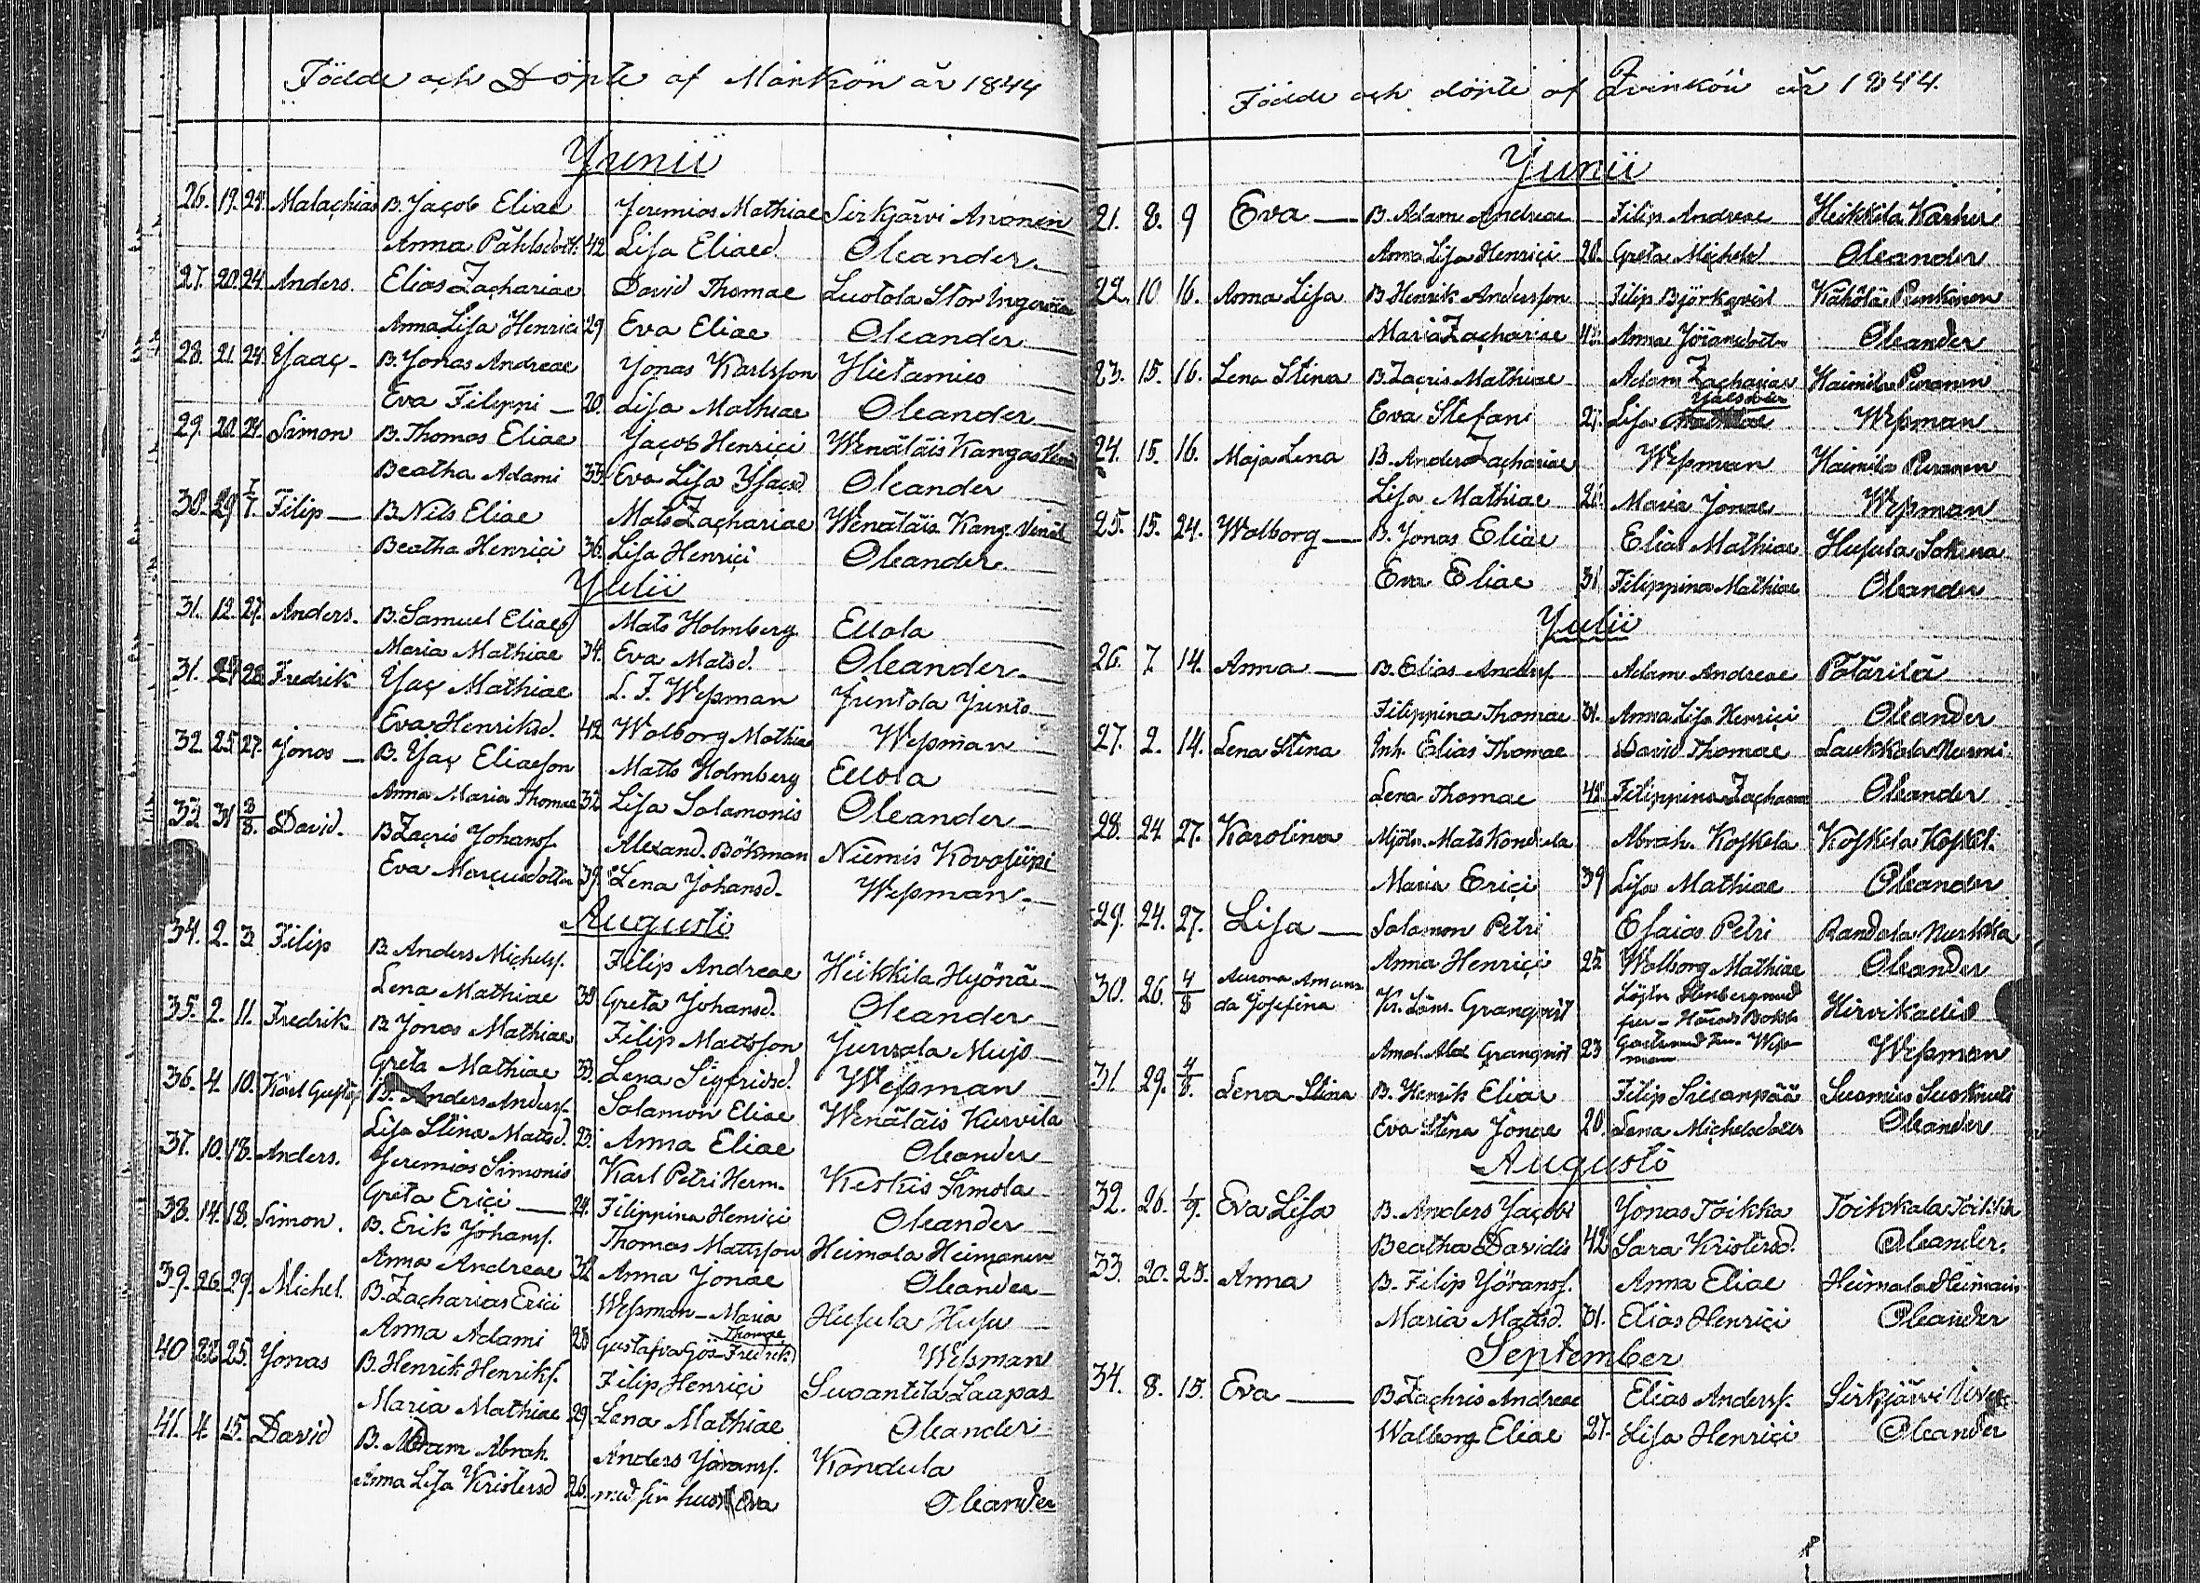 Födde och Döpte af Mankön år 1844
Junii
26. 19. 24. Malachias B. Jacob Eliae Jeremias Mathiae Sirkjärvi Anonen
Anna Påhlsdott. 42 Lisa Eliaed. Oleander
27. 20. 24. Anders. Elias Zachariae David Thomae Luotola Stor
Anna Lisa Henrici 29 Eva Eliae Oleander
28. 21. 24. Isaac - B. Jonas Andreae Jonas Karlsson Hietamies
Eva Filippi — 20. Lisa Mathiae Oleander
29. 20. 24. Simon B. Thomas Eliae Jacob Henrici Wenäläis Kangas
Beatha Adami 33. Eva Lisa Isacsd. Oleander
30. 29 1/7. Filip — B. Nils Eliae Mats Zachariae Wenäläis Kang. Venäl
Beatha Henrici 36. Lisa Henrici Oleander.
Julii
31. 12. 27. Anders. B. Samuel Eliaes Mats Holmberg Ellola
Maria Mathiae 34. Eva Matsd. Oleander
31. 24 28 Fredrik Isac Mathiae L. F. Wessman Juntola Junto
Eva Henriksd. 42 Walborg Mathiae Wessman
32 25 27. Jonas — B. Isac Eliaeson Matts Holmberg Ellola
Anna Maria Thomae 32 Lisa Solamonis Oleander
33 31 3/8. David. B. Zacris Johanss. Alexand. Bökman Niemis Kovasiipi
Eva Marcusdotter 39. Lena Johansd. Wessman
Augusti
34. 2. 3. Filip B. Anders Michelss. Filip Andreae Heikkilä Hyönä
Lena Mathiae 38 Greta Johansd. Oleander
35. 2. 11. Fredrik B. Jonas Mathiae Filip Mattsson Jurvala Mujo
Greta Mathiae 33. Lena Sigfridsd. Wessman
36. 4. 10. Karl Gustaf B. Anders Anderss. Salamon Eliae Wenäläis Kurvila
Lisa Stina Matsd. 23. Anna Eliae Oleander
37. 10. 18. Anders. Jeremias Simonis Karl Petri Herm. Keskis Simola
Greta Erici — 24. Filippina Henrici Oleander
38. 14. 18. Simon. B. Erik Johanss. Thomas Mattsson Heimola Heimonen
Anna Andreae 32 Anna Jonae Oleander
39. 26. 29. Michel. B. Zacharias Erici Wessman — Maria Thomae Husula Husu
Anna Adami 28 Gustafva Gös-Fredrikd Wessman
40 22 25. Jonas B. Henrik Henrikss. Filip Henrici Suoantila Laapas
Maria Mathiae 29. Lena Mathiae Oleander
41. 4. 15. David B. Adam Abrah. Anders Jöranss. Kondula
Anna Lisa Kristersd 26. med sin hust. Eva Oleander
Födde och döpte af Qvinkön år 1844.
Junii
21. 8. 9 Eva — B. Adam Andreae Filip Andreae Heikkilä Karhu
Anna Lisa Henrici 28. Greta Michelsd Oleander
22. 10 16. Anna Lisa B. Henrik Andersson Filip Björkqvist Kähölä Punkinen
Maria Zachariae 43. Anna Jöransdott Oleander
23. 15. 16. Lena Stina B. Zacris Mathiae Adam Zacharias Haimila Puranen
Eva Stefani 27. Lisa Wessman
24. 15. 16. Maja Lena B. Anders Zachariae Wessman Haimila Puranen
Lisa Mathiae 26. Maria Jonae Wessman
25. 15. 24. Walborg — B. Jonas Eliae Elias Mathiae Husula
Eva Eliae 31. Filippina Mathiae Oleander
Julii
26. 7 14. Anna — B. Elias Anderss. Adam Andreae Pätärilä
Filippina Thomae 31. Anna Lisa Henrici Oleander
27. 2. 14. Lena Stina Inh. Elias Thomae David Thomae Laukkala Nurmi
Lena Thomae 42. Filippina Zacharia Oleander
28. 24 27. Karolina Mjöln. Mats Kondula Abrah. Koskela Koskela Koskel.
Maria Erici 39 Lisa Mathiae Oleander
29. 24. 27. Lisa — Salomon Petri Esaias Petri Randala Nurkka
Anna Henrici 25 Walborg Mathiae Oleander
30. 26. 4/8 Aurora Amanda Josefina Kr. Läns. Granqvist Hirvikallio
Amal. Alex. Granqvist 23 Wessman Wessman
31 29. 4/8. Lena Stina B. Henrik Eliae Filip Siisanpää Suomies Suoknuuti
Eva Stina Jonae 20. Lena Michelsdotter Oleander
Augusti
32. 26. 1/9. Eva Lisa B. Anders Jacobi Jonas Toikka Toikkala Toikka
Beatha Davidis 42 Sara Kristersd. Oleander.
33. 20. 25. Anna B. Filip Jöranss. Anna Eliae Heimala Heimain
Maria Matsd. 31. Elias Henrici Oleander
September
34. 8. 15. Eva — B. Zachris Andreae Elias Anderss. Sirkjärvi
Walborg Eliae 27. Lisa Henrici Oleander